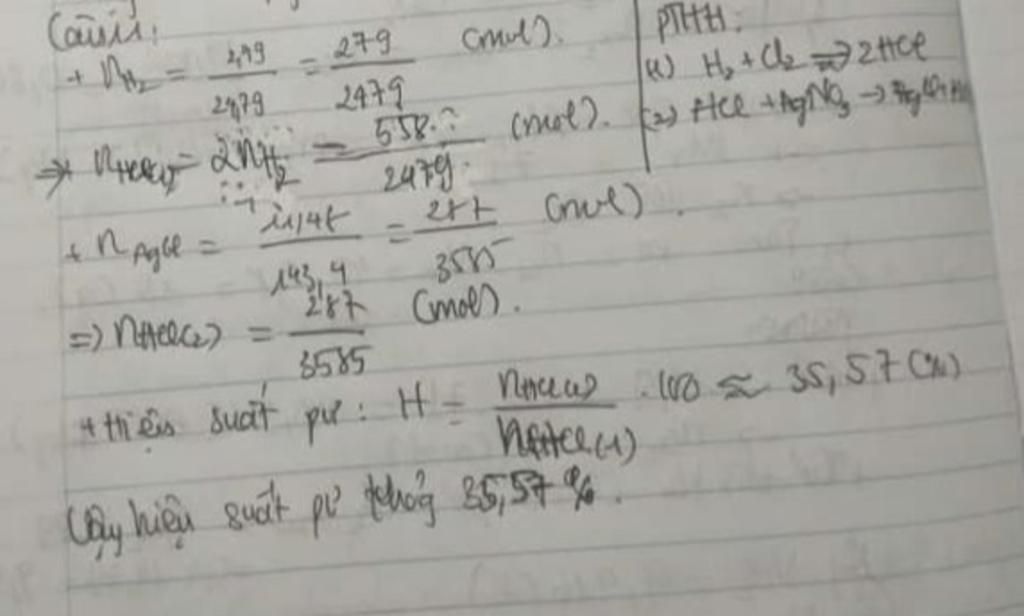 + nH₂ = 2,79/24,79 = 279/2479 (mol).
⇒ nHCl(1) = 2nH₂ = 558/2479 (mol).
+ nAgCl = 11,48/143,4 = 287/3585 (mol).
=> nHCl(2) = 287/3585 (mol).
+ Hiệu suất pư: H = nHCl(2)/nHCl(1) . 100 ≈ 35,57 (%)
Vậy hiệu suất pư khoảng 35,57%.
PTHH:
(1) H₂ + Cl₂ → 2HCl
(2) HCl + AgNO₃ →